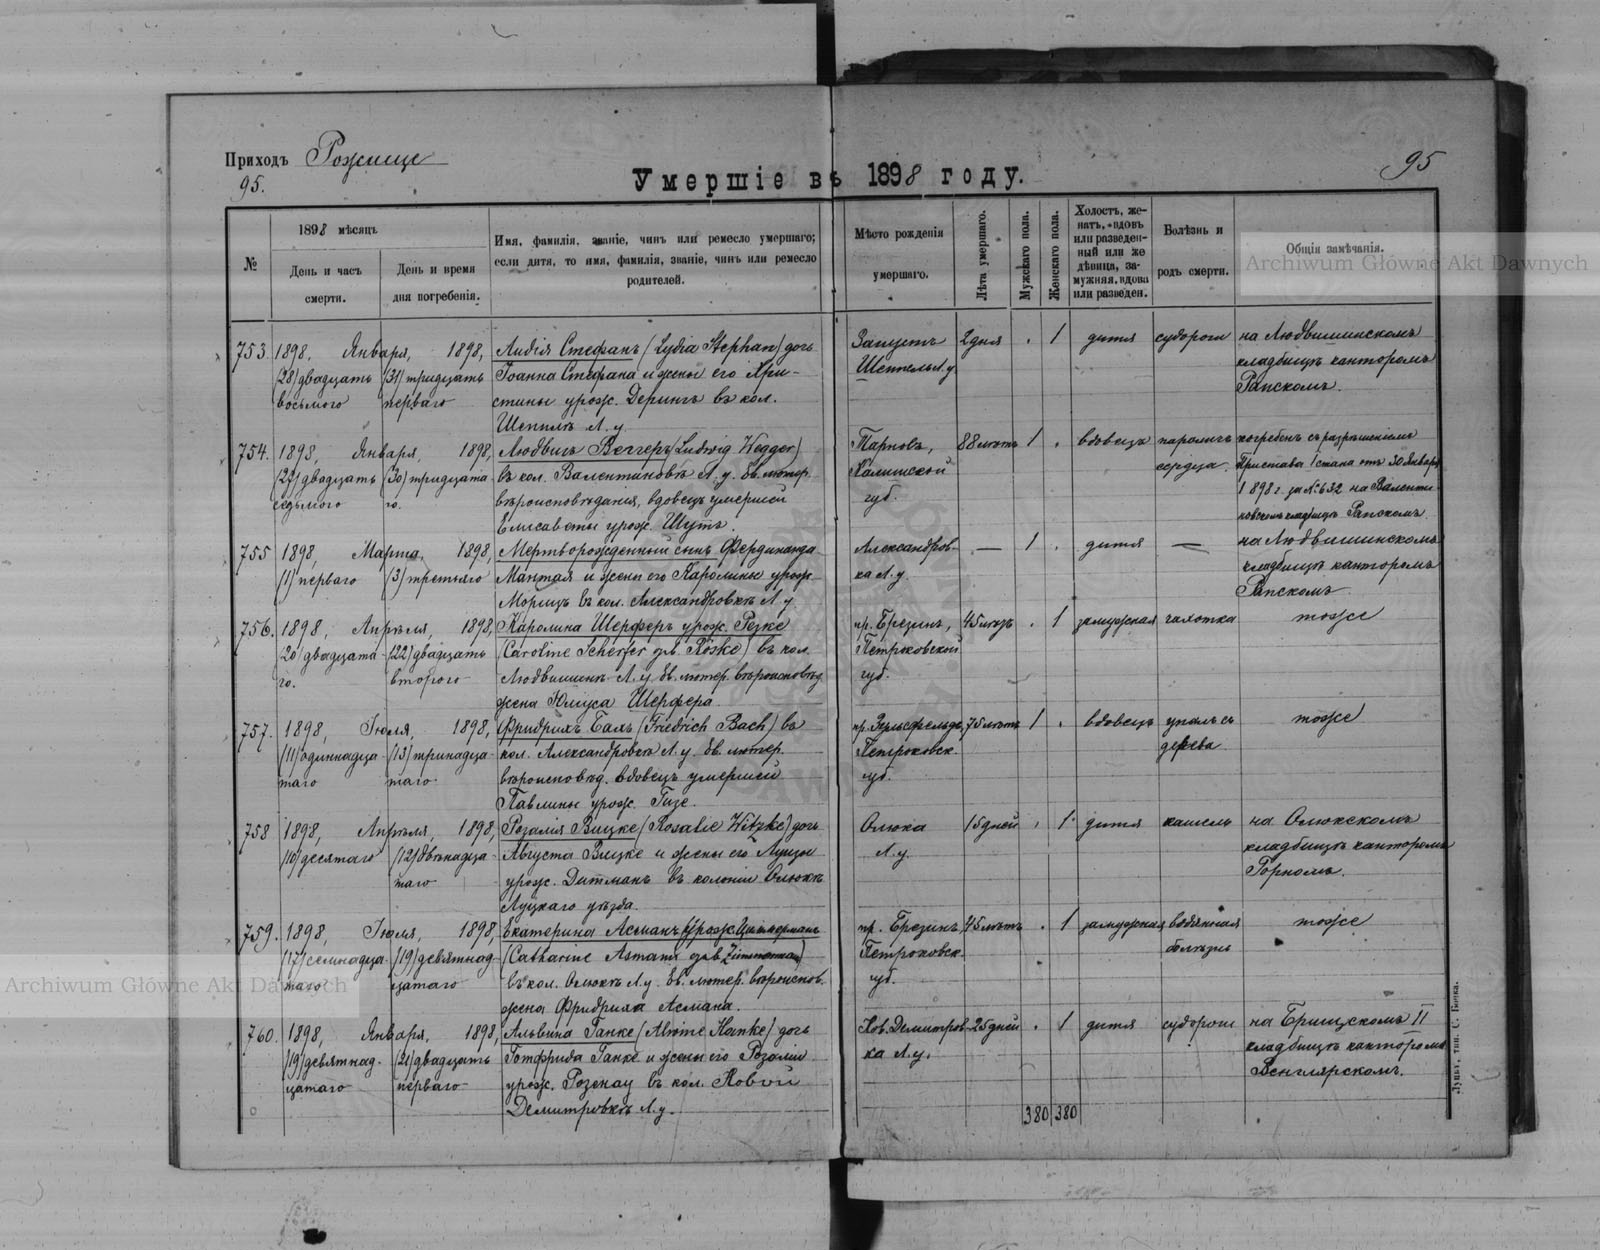 Приходъ Рожище
95.
95
Умершіе въ 1898 году.
№
1898 мѣсяцъ
День и часъ смерти.
День и время дня погребенія.
Имя, фамилія, званіе, чинъ или ремесло умершаго;
если дитя, то имя, фамилія, званіе, чинъ или ремесло
родителей.
Мѣсто рожденія
умершаго.
Лѣта умершаго.
Мужскаго пола.
Женскаго пола.
Холостъ, же-
натъ, вдовъ
или разведен-
ный или же
дѣвица, за-
мужняя, вдова
или разведен.
Болѣзнь и
родъ смерти.
Общія замѣчанія.
Archiwum Główne Akt Dawnych
753. 1898, Января, 1898, Лидія Стефанъ (Lydia Stephan) дочь
(28) двадцать (31) тридцать Іоанна Стефана и жены его Хри-
восьмого перваго стины урож. Дерингъ въ кол.
Шепель Л. у.
2 дня . 1 дитя судороги на Людвишинскомъ
Шепель Л. у. кладбищѣ канторомъ
Рапскомъ.
754. 1898, Января, 1898, Людвигъ Веггеръ (Ludwig Wegger)
(27) двадцать (30) тридцата- въ кол. Валентиновкѣ Л. у. Ев. лютер.
седьмого го. вѣроисповѣданія, вдовецъ умершей
Елисаветы урож. Шутъ.
Тарновъ, 88 лѣтъ 1 . вдовецъ параличъ погребенъ съ разрѣшеніемъ
Калишской сердца. Пристава 1 стана отъ 30 Января
губ. 1898 г. за № 632 на Валенти-
новскомъ кладбищѣ Рапскомъ.
755 1898, Марта, 1898, Мертворожденный сынъ Фердинанда
(1) перваго (3) третьяго Мантая и жены его Каролины урож.
Морицъ въ кол. Александровкѣ Л. у.
Александров- — 1 . дитя — на Людвишинскомъ
ка Л. у. кладбищѣ канторомъ
Рапскомъ.
756. 1898, Апрѣля, 1898, Каролина Шерферъ урож. Резке
(20) двадцата- (22) двадцать (Caroline Scherfer geb. Röske) въ кол.
го. второго Людвишинъ Л. у. Ев. лютер. вѣроисповѣд.
жена Юлиуса Шерфера.
пр. Брезинъ, 45 лѣтъ . 1 замужняя чахотка тоже
Петроковской
губ.
757. 1898, Іюля, 1898, Фридрихъ Бахъ (Friedrich Bach) въ
(11) одиннадца- (13) тринадца- кол. Александровкѣ Л. у. Ев. лютер.
таго таго. вѣроисповѣд. вдовецъ умершей
Павлины урож. Гизе.
75 лѣтъ 1 . вдовецъ упалъ съ тоже
Петроковск. дерева
губ.
758 1898, Апрѣля, 1898, Розалія Вицке (Rosalie Witzke) дочь
(10) десятаго (12) двѣнадца- Августа Вицке и жены его Луизы
таго урож. Дитманъ въ колоніи Олыкѣ
Луцкаго уѣзда.
Олыка 15 дней . 1 дитя кашель на Олыкскомъ
Л. у. кладбищѣ канторомъ
Горномъ.
759. 1898, Іюля, 1898, Екатерина Асманъ урож. Циммерманъ
(17) семнадца- (19) девятнад- (Catharine Asmann geb. Zimmermann)
таго цатаго въ кол. Олыкѣ Л. у. Ев. лютер. вѣроиспов.
жена Фридриха Асмана.
пр. Брезинъ 45 лѣтъ . 1 замужняя водяная тоже
Петроковск. болѣзнь
губ.
Archiwum Główne Akt Dawnych
760. 1898, Января, 1898, Альвина Ганке (Alwine Hanke) дочь
(19) девятнад- (21) двадцать Готфрида Ганке и жены его Розаліи
цатаго перваго урож. Розенау въ кол. Новой
Демитровкѣ Л. у.
Нов. Демитров- 25 дней . 1 дитя судороги на Брищскомъ II
ка Л. у. кладбищѣ канторомъ
Венглярскомъ.
380 380
Луцкъ, тип. С. Бонка.